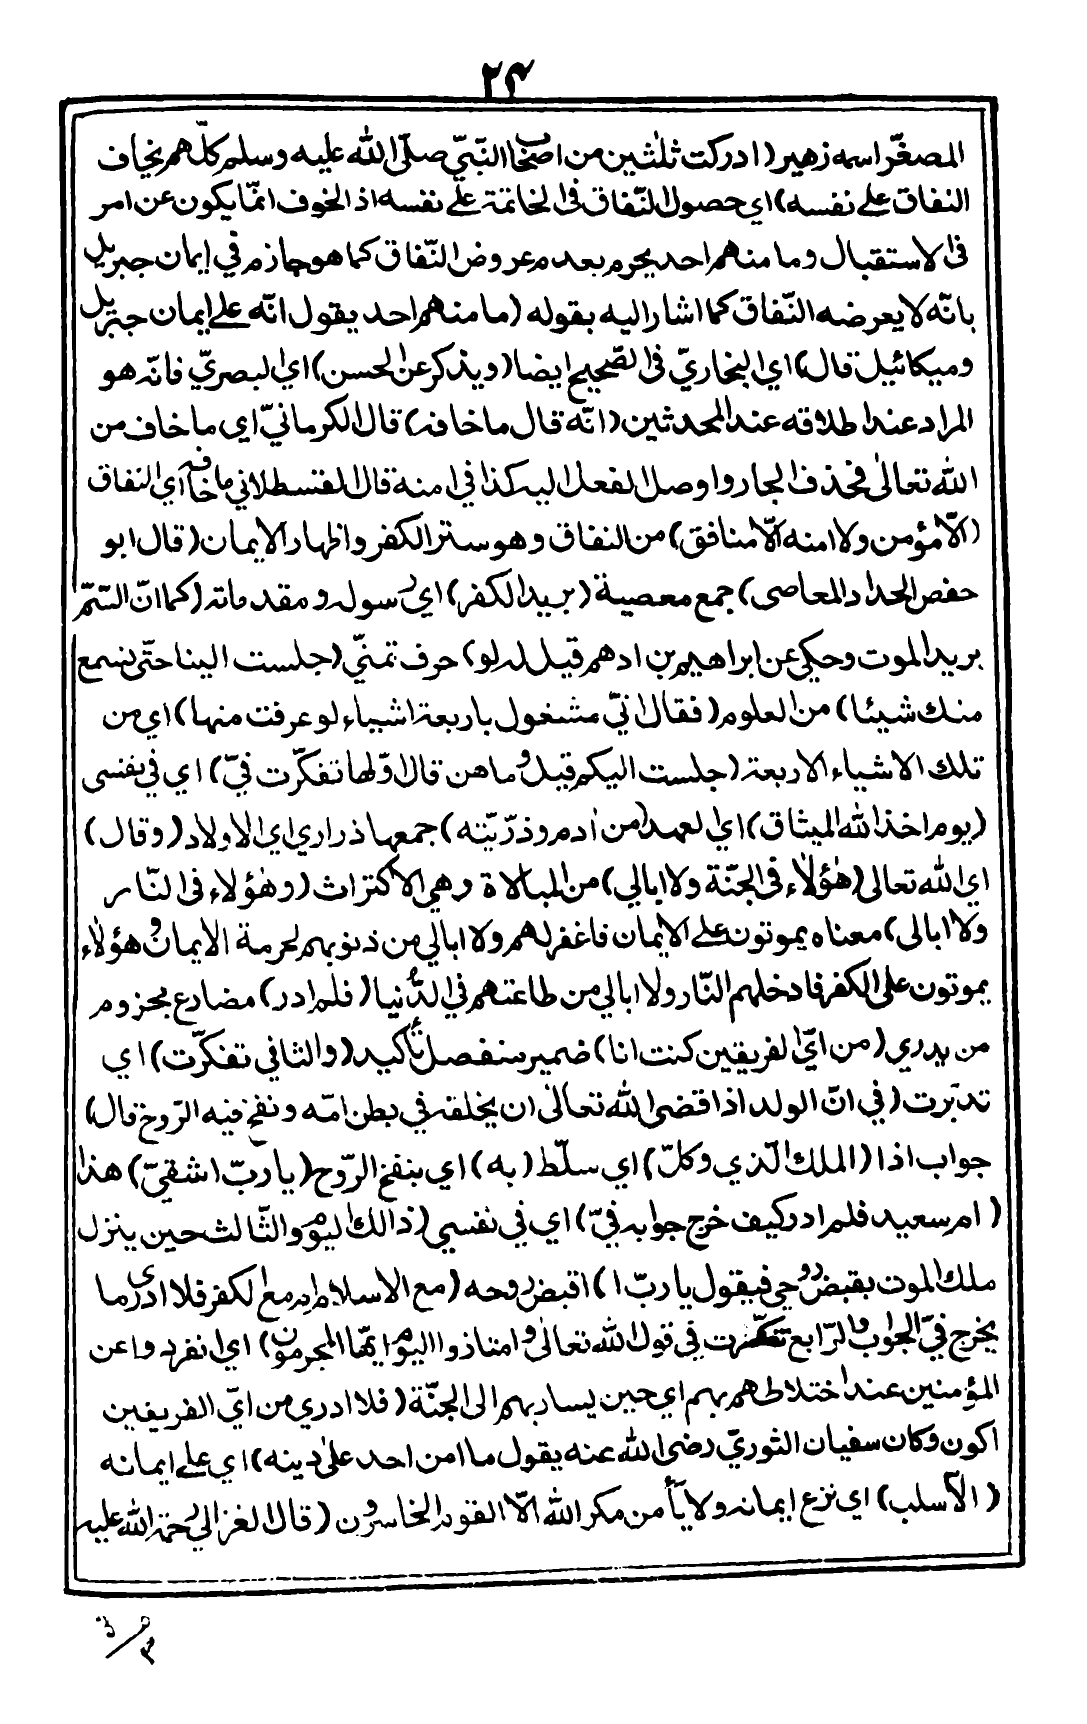 ٢٤
المصغّر اسمه زهير (ادركت ثلثين من اصحاب النّبيّ صلّى الله عليه وسلم كلّهم يخاف
النفاق على نفسه) اي حصول النّفاق فى الخاتمة على نفسه اذ الخوف انّما يكون عن امر
فى الاستقبال وما منهم احد يجزم بعدم عروض النّفاق كما هو جازم في ايمان جبريل
بانّه لا يعرضه النّفاق كما اشار اليه بقوله (ما منهم احد يقول انّه على ايمان جبريل
وميكائيل قال) اي البخاريّ فى الصّحيح ايضا (ويذكر عن الحسن) اي البصريّ فانّه هو
المراد عند اطلاقه عند المحدثين (انّه قال ما خافه) قال الكرمانيّ اي ما خاف من
الله تعالى فحذف الجار واوصل الفعل اليه كذا في امنه قال القسطلاني ما خافه اي النفاق
(الّا مؤمن ولا امنه الّا منافق) من النفاق وهو ستر الكفر واظهار الايمان (قال ابو
حفص الحداد المعاصى) جمع معصية (بريد الكفر) اي رسوله ومقدماته (كما انّ السّمّ
بريد الموت وحكي عن ابراهيم بن ادهم قيل له لو) حرف تمنّي (جلست الينا حتّى نسمع
منك شيئا) من العلوم (فقال انّي مشغول باربعة اشياء لو عرفت منها) اي من
تلك الاشياء الاربعة (جلست اليكم قيل وما هن قال اوّلها تفكّرت فيّ) اي في نفسى
(يوم اخذ الله الميثاق) اي العهد (من اٰدم وذرّيّته) جمعها ذراري اي الاولاد (وقال)
اي الله تعالى (هٰؤلاء فى الجنّة ولا ابالي) من المبالاة وهي الاكتراث (وهٰؤلاء فى النّار
ولا ابالى) معناه يموتون على الايمان فاغفر لهم ولا ابالي من ذنوبهم لحرمة الايمان وهؤلاء
يموتون على الكفر فادخلهم النّار ولا ابالي من طاعتهم في الدّنيا (فلم ادر) مضارع مجزوم
من يدري (من ايّ الفريقين كنت انا) ضمير منفصل تأكيد (والثاني تفكّرت) اي
تدبّرت (في انّ الولد اذا قضى الله تعالى ان يخلقه في بطن امّه ونفخ فيه الرّوح قال)
جواب اذا (الملك الّذي وكلّ) اي سلّط (به) اي بنفخ الرّوح (يا ربّ اشقيّ) هذا
(ام سعيد فلم ادر كيف خرج جوابه فيّ) اي في نفسي (ذالك اليوم والثّالث حين ينزل
ملك الموت بقبض روحي فيقول يا ربّ ا) اقبض روحه (مع الاسلام ام مع الكفر فلا ادرى ما
يخرج فيّ الجواب والرّابع تفكّرت في قول الله تعالى وامتازوا اليوم ايّها المجرمون) اي انفردوا عن
المؤمنين عند اختلاطهم بهم اي حين يسار بهم الى الجنّة (فلا ادري من ايّ الفريقين
اكون وكان سفيان الثوريّ رضى الله عنه يقول ما امن احد على دينه) اي على ايمانه
(الّا سلب) اي نزع ايمانه ولا يأمن مكر الله الّا القوم الخاسرون (قال الغزالي رحمة الله عليه